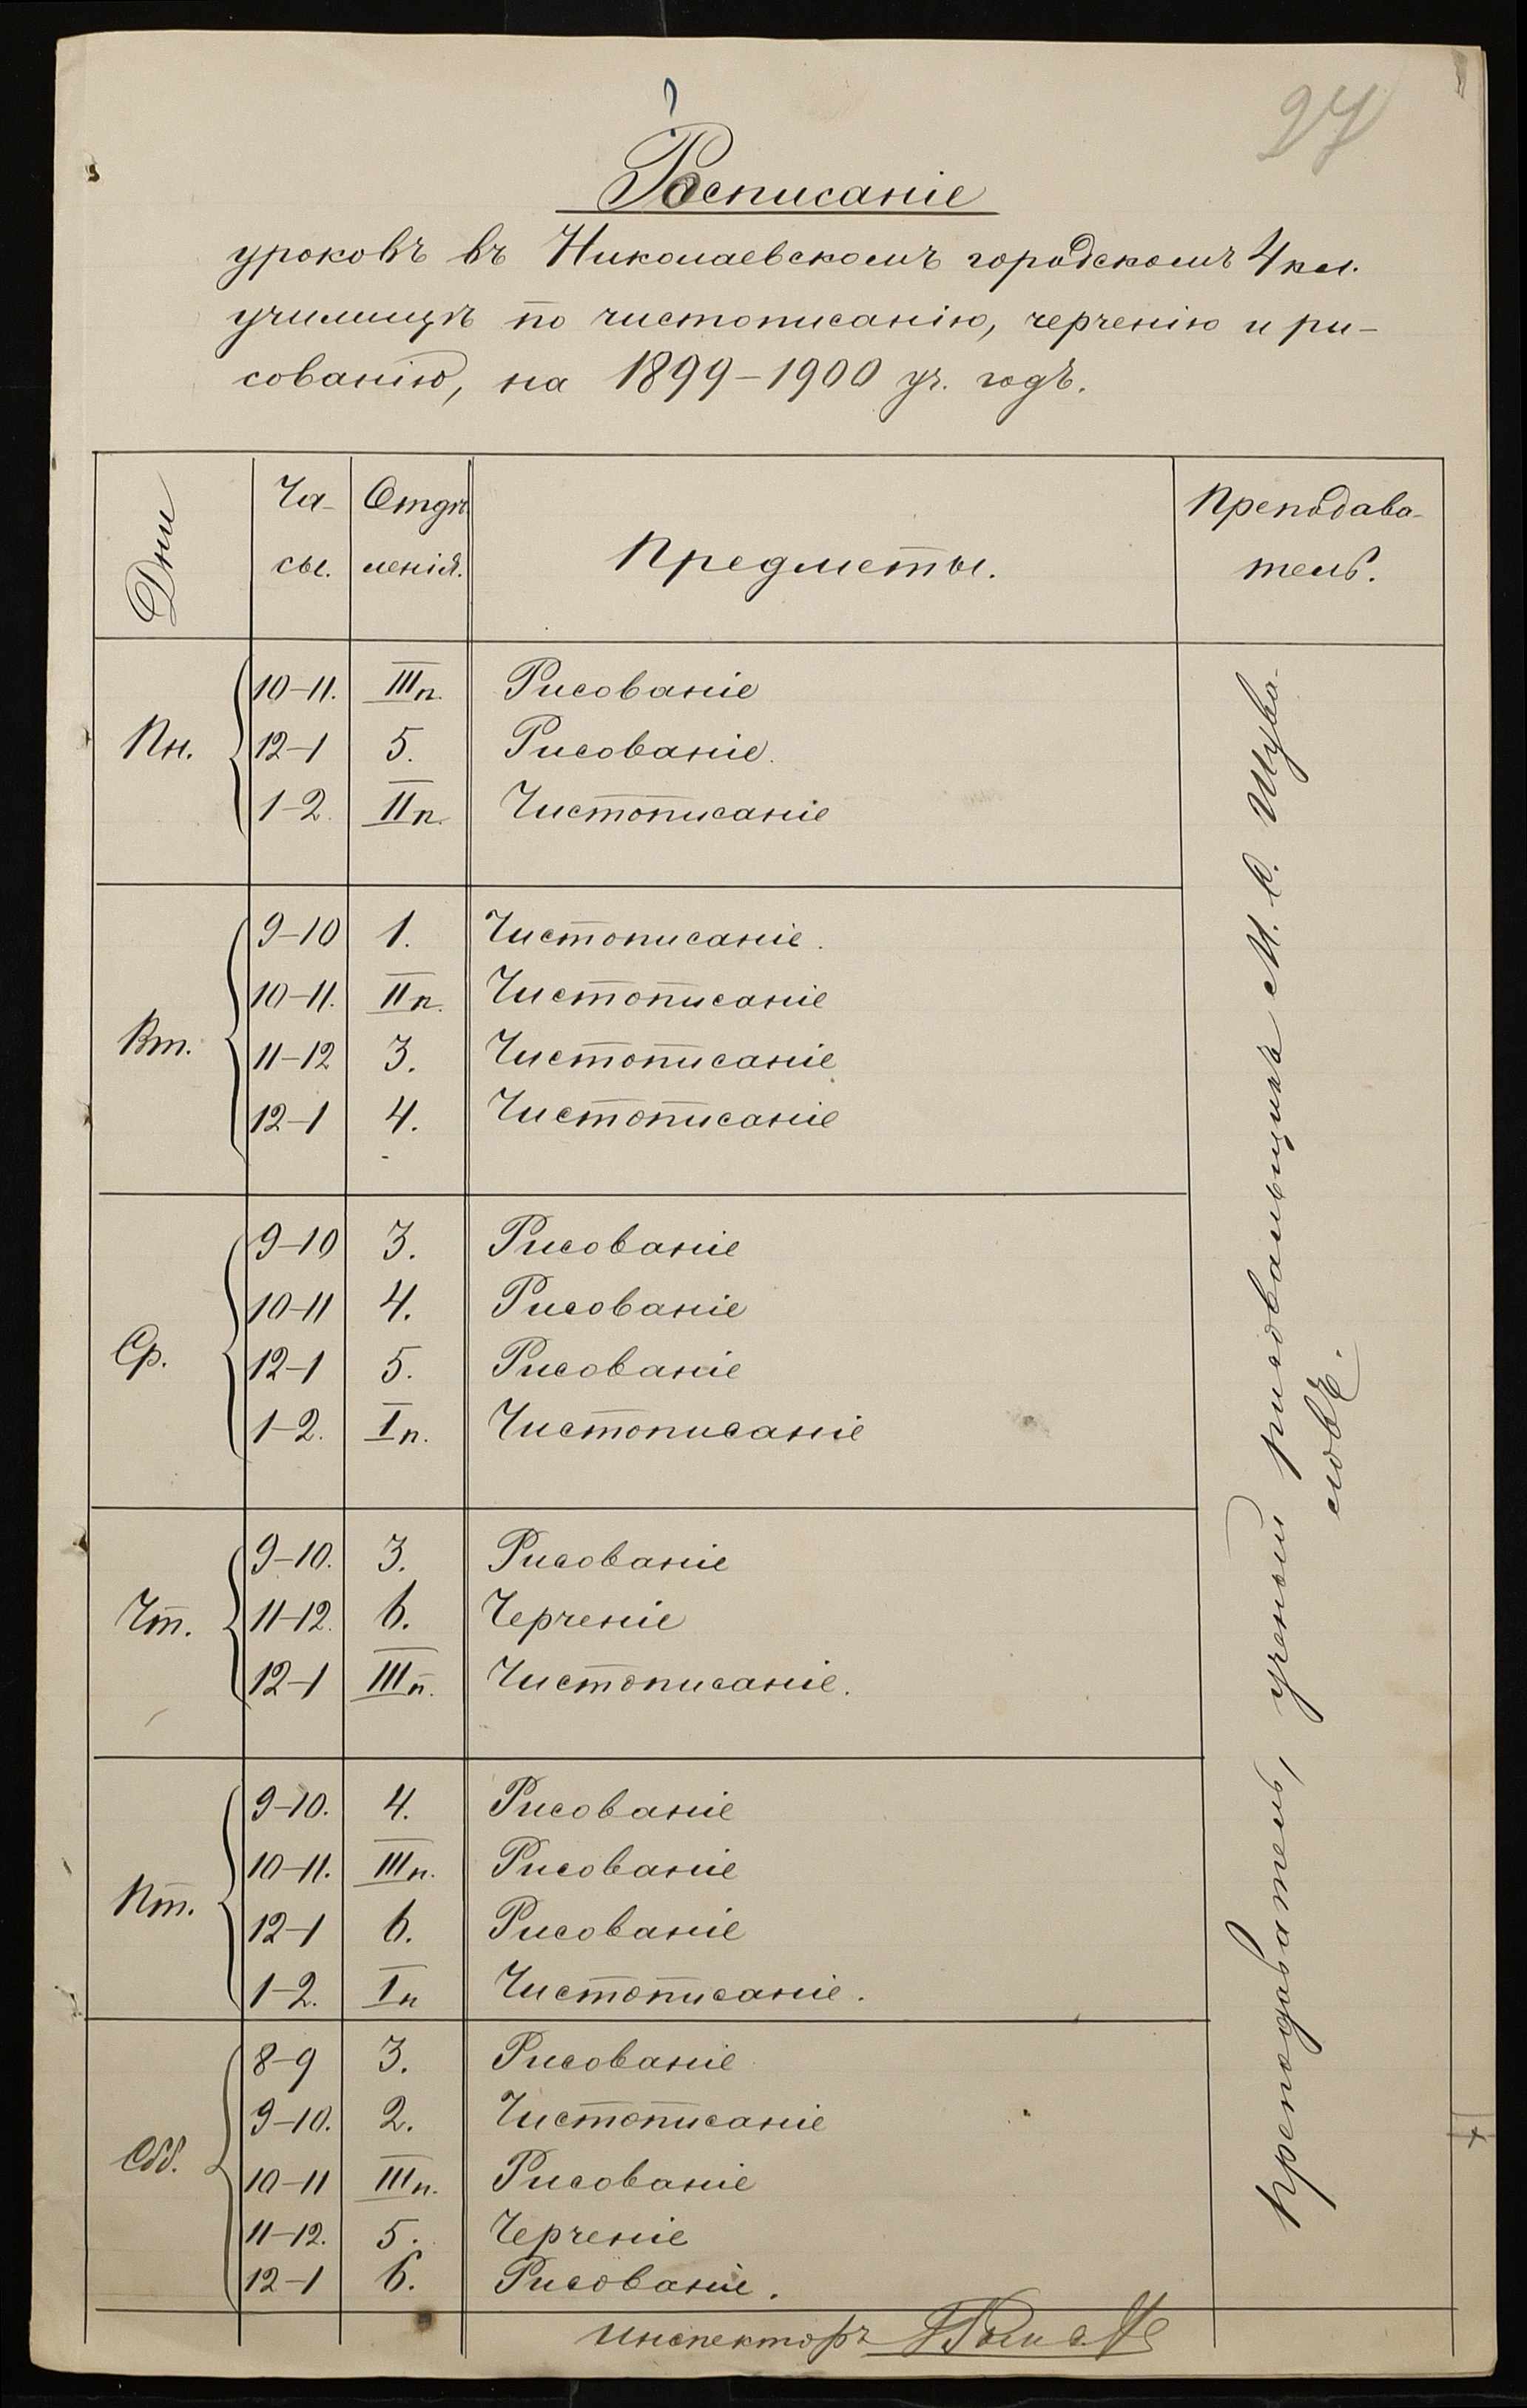 27
Росписаніе
уроковъ въ Николаевскомъ городскомъ 4 кл.
училищѣ по чистописанію, черченію и ри-
сованію, на 1899–1900 уч. годъ.
Дни Ча- Отдѣ Преподава-
сы. ленія. Предметы. тель.
10–11. IIIп. Рисованіе
Пн. 12–1 5. Рисованіе.
1–2. IIп. Чистописаніе
9–10 1. Чистописаніе.
10–11. IIп. Чистописаніе
Вт. 11–12 3. Чистописаніе
12–1 4. Чистописаніе
9–10 3. Рисованіе
10–11 4. Рисованіе
Ср. 12–1 5. Рисованіе
1–2. Iп. Чистописаніе
9–10. 3. Рисованіе
Чт. 11–12. 6. Черченіе
12–1 IIIп. Чистописаніе.
9–10. 4. Рисованіе
10–11. IIIп. Рисованіе
Пт. 12–1 6. Рисованіе
1–2. Iп Чистописаніе.
8–9 3. Рисованіе
9–10. 2. Чистописаніе
Сбб. 10–11 IIIп. Рисованіе
11–12. 5. Черченіе
12–1 6. Рисованіе.
Преподаватель, ученый рисовальщикъ М. С. Шува-
ловъ.
Инспекторъ